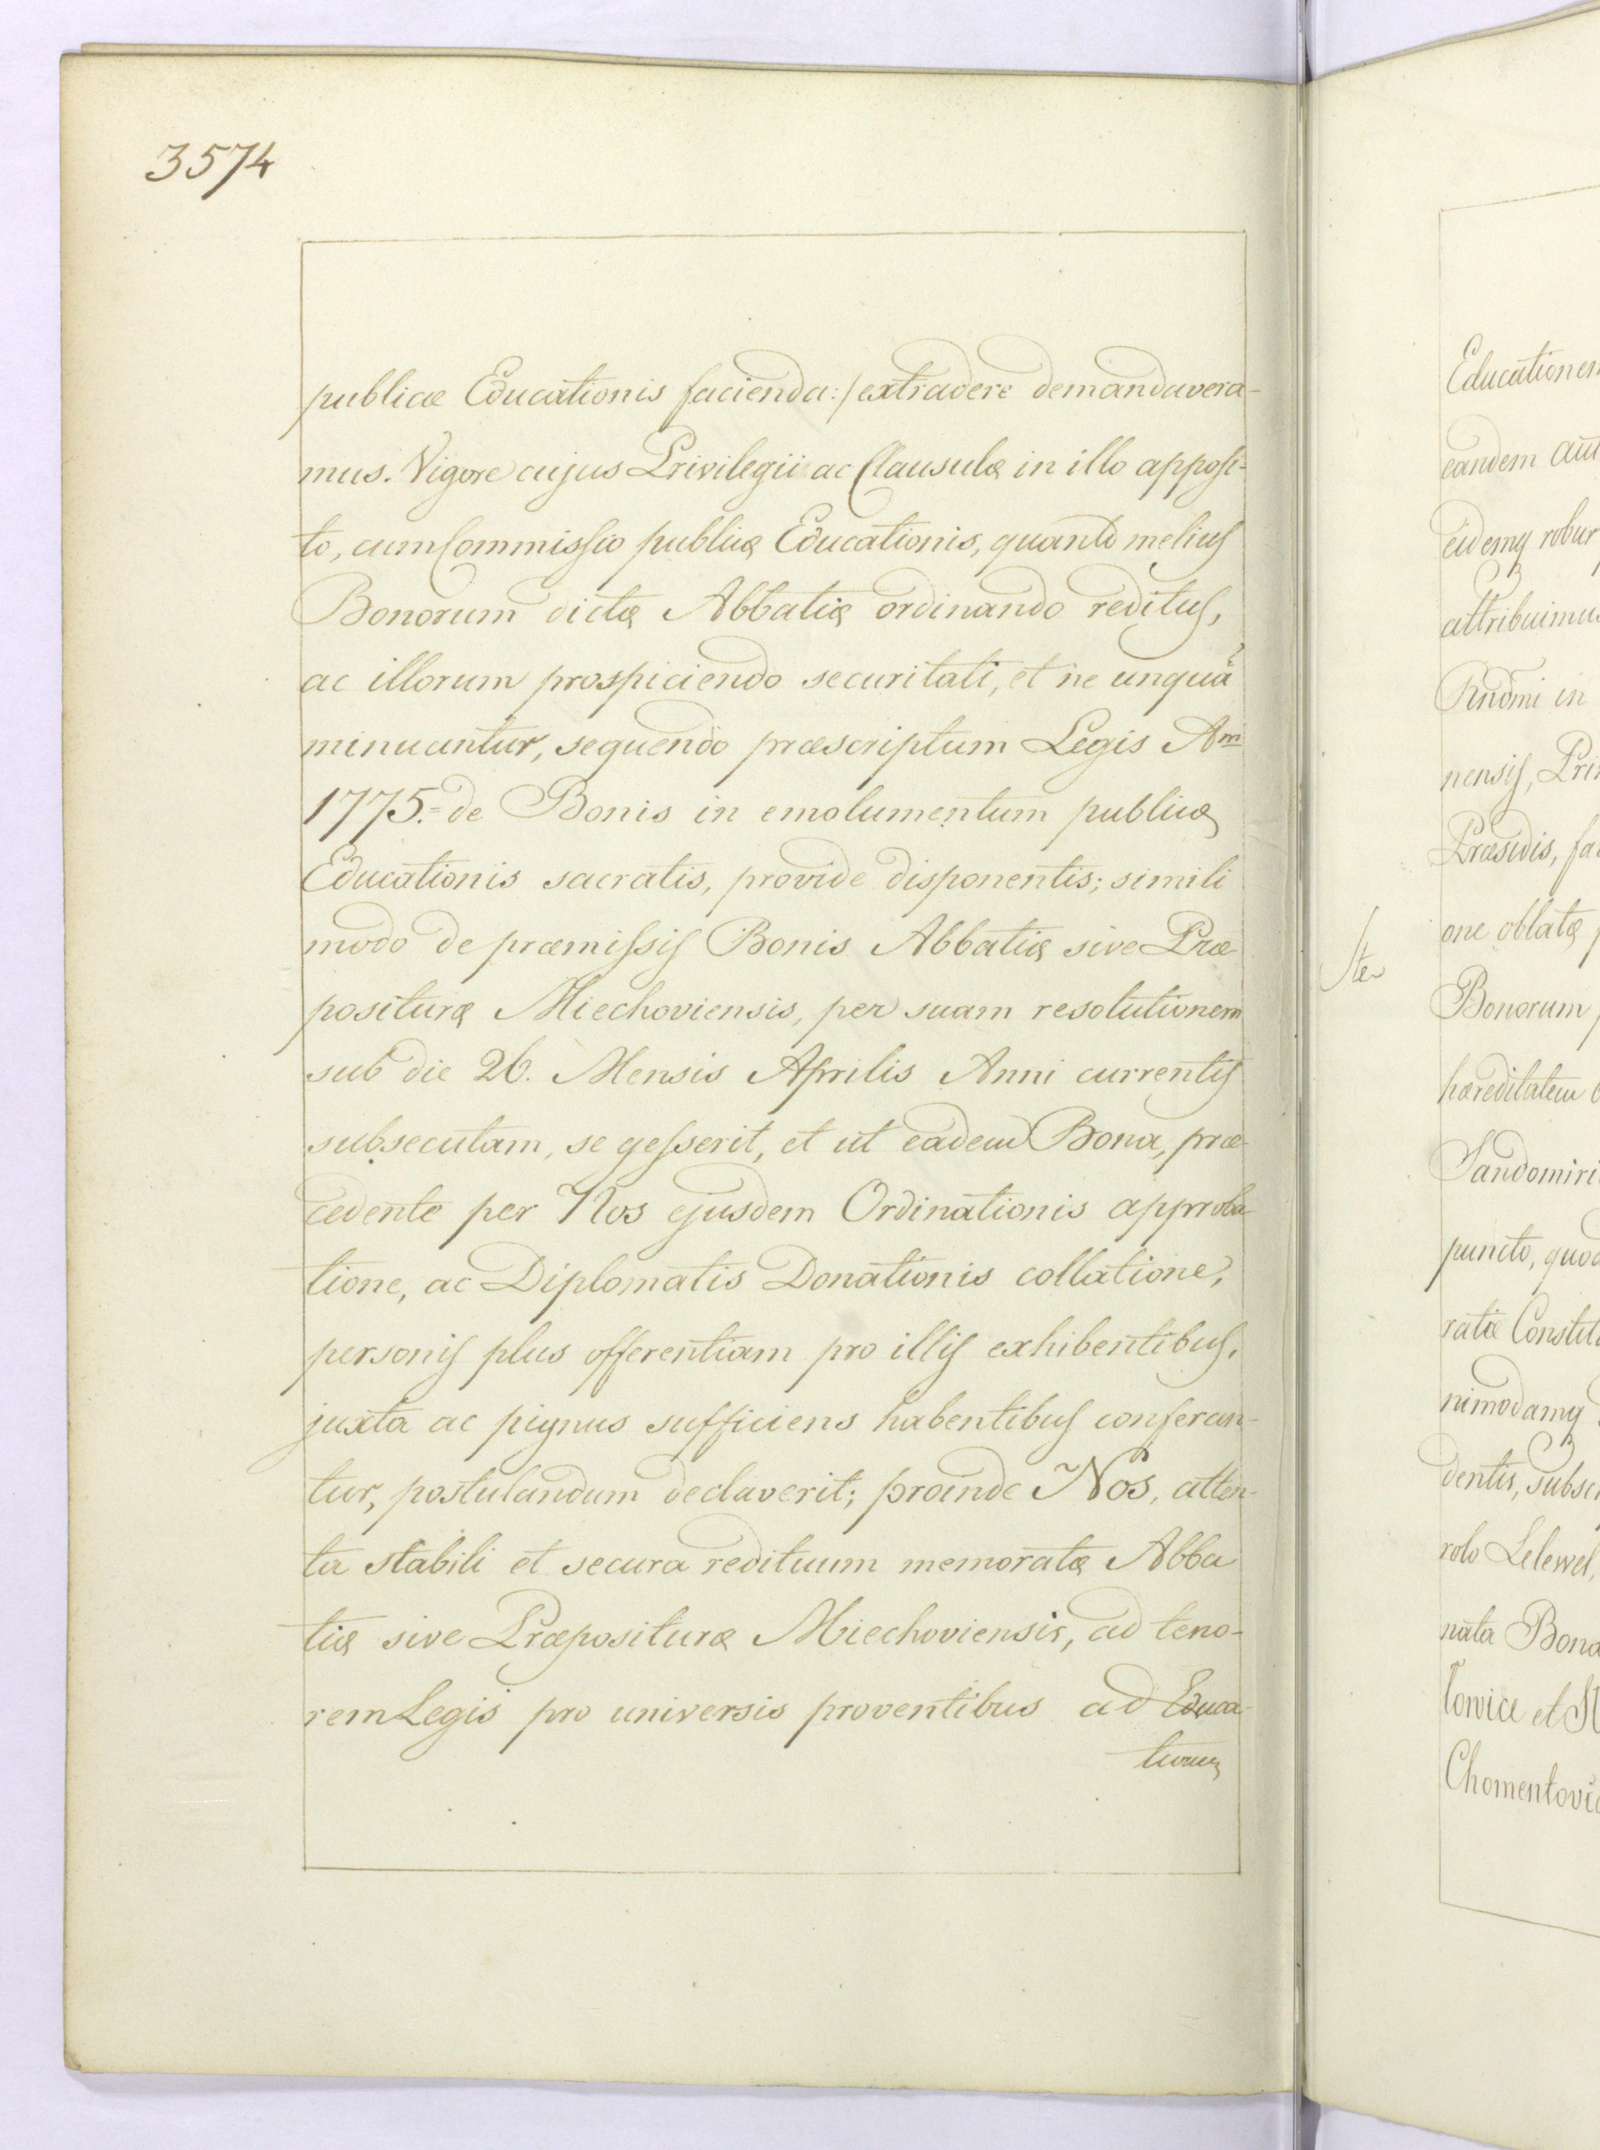 3574
publicæ Educationis facienda:/ extradere demandavera-
mus. Vigore cujus Privilegii ac Clausulæ in illo apposi-
to, cum Commissio publicæ Educationis, quanto melius
Bonorum dictæ Abbatiæ ordinando reditus,
ac illorum prospiciendo securitati, et ne unquã
minuantur, sequendo præscriptum Legis Anni
1775.= de Bonis in emolumentum publicæ
Educationis sacratis, provide disponentis; simili
modo de præmissis Bonis Abbatiæ sive Præ
posituræ Miechoviensis, per suam resolutionem
sub die 26. Mensis Aprilis Anni currentis
subsecutam, se gesserit, et ut eadem Bona, præ-
cedente per Nos ejusdem Ordinationis approba-
tione, ac Diplomatis Donationis collatione,
personis plus offerentiam pro illis exhibentibus,
juxta ac pignus sufficiens habentibus conferan-
tur, postulandum declaverit; proinde Nos, atten-
ta stabili et secura redituum memoratæ Abba
tiæ sive Præposituræ Miechoviensis, ad teno-
rem Legis pro universis proventibus ad Educa-
Educationem
eandem
eidemq robur
attribuimus
Rndmi in
nensis,
Præsidis,
one oblatæ
Bonorum
hæreditatem
Sandomiri
puncto,
ratæ
nimodamq
dentis,
rolo Lelewel,
nata Bona
towice et
Chomentovi